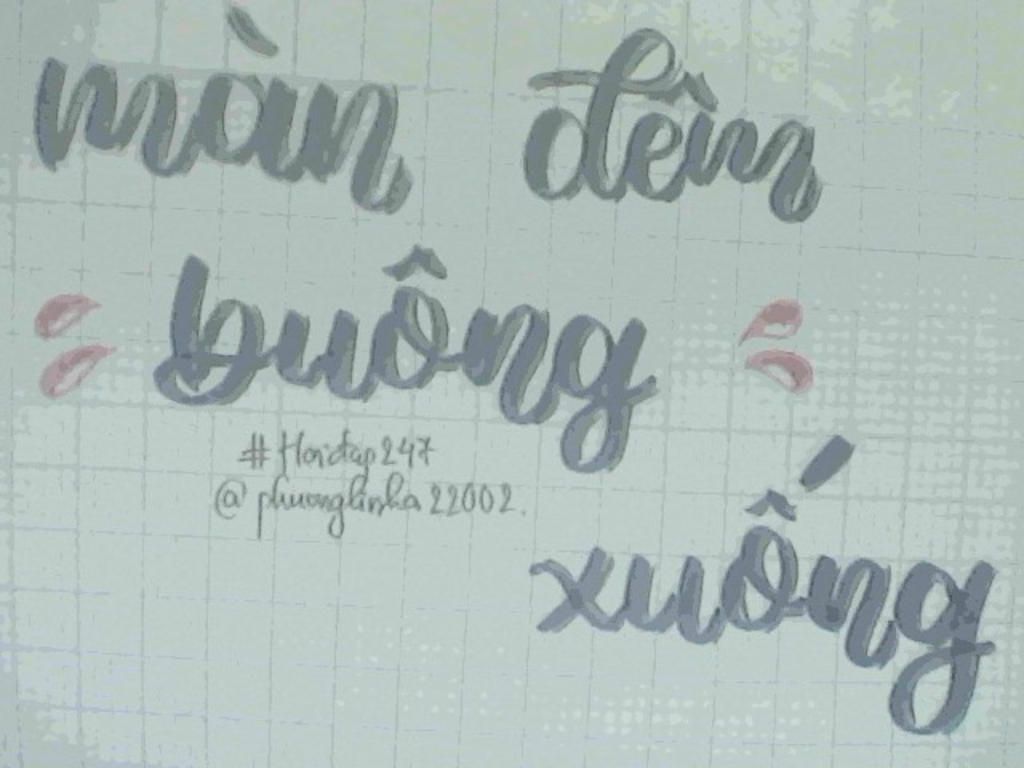 màn đêm
buông
#Hoidap247
@phuonglinhha22002.
xuống